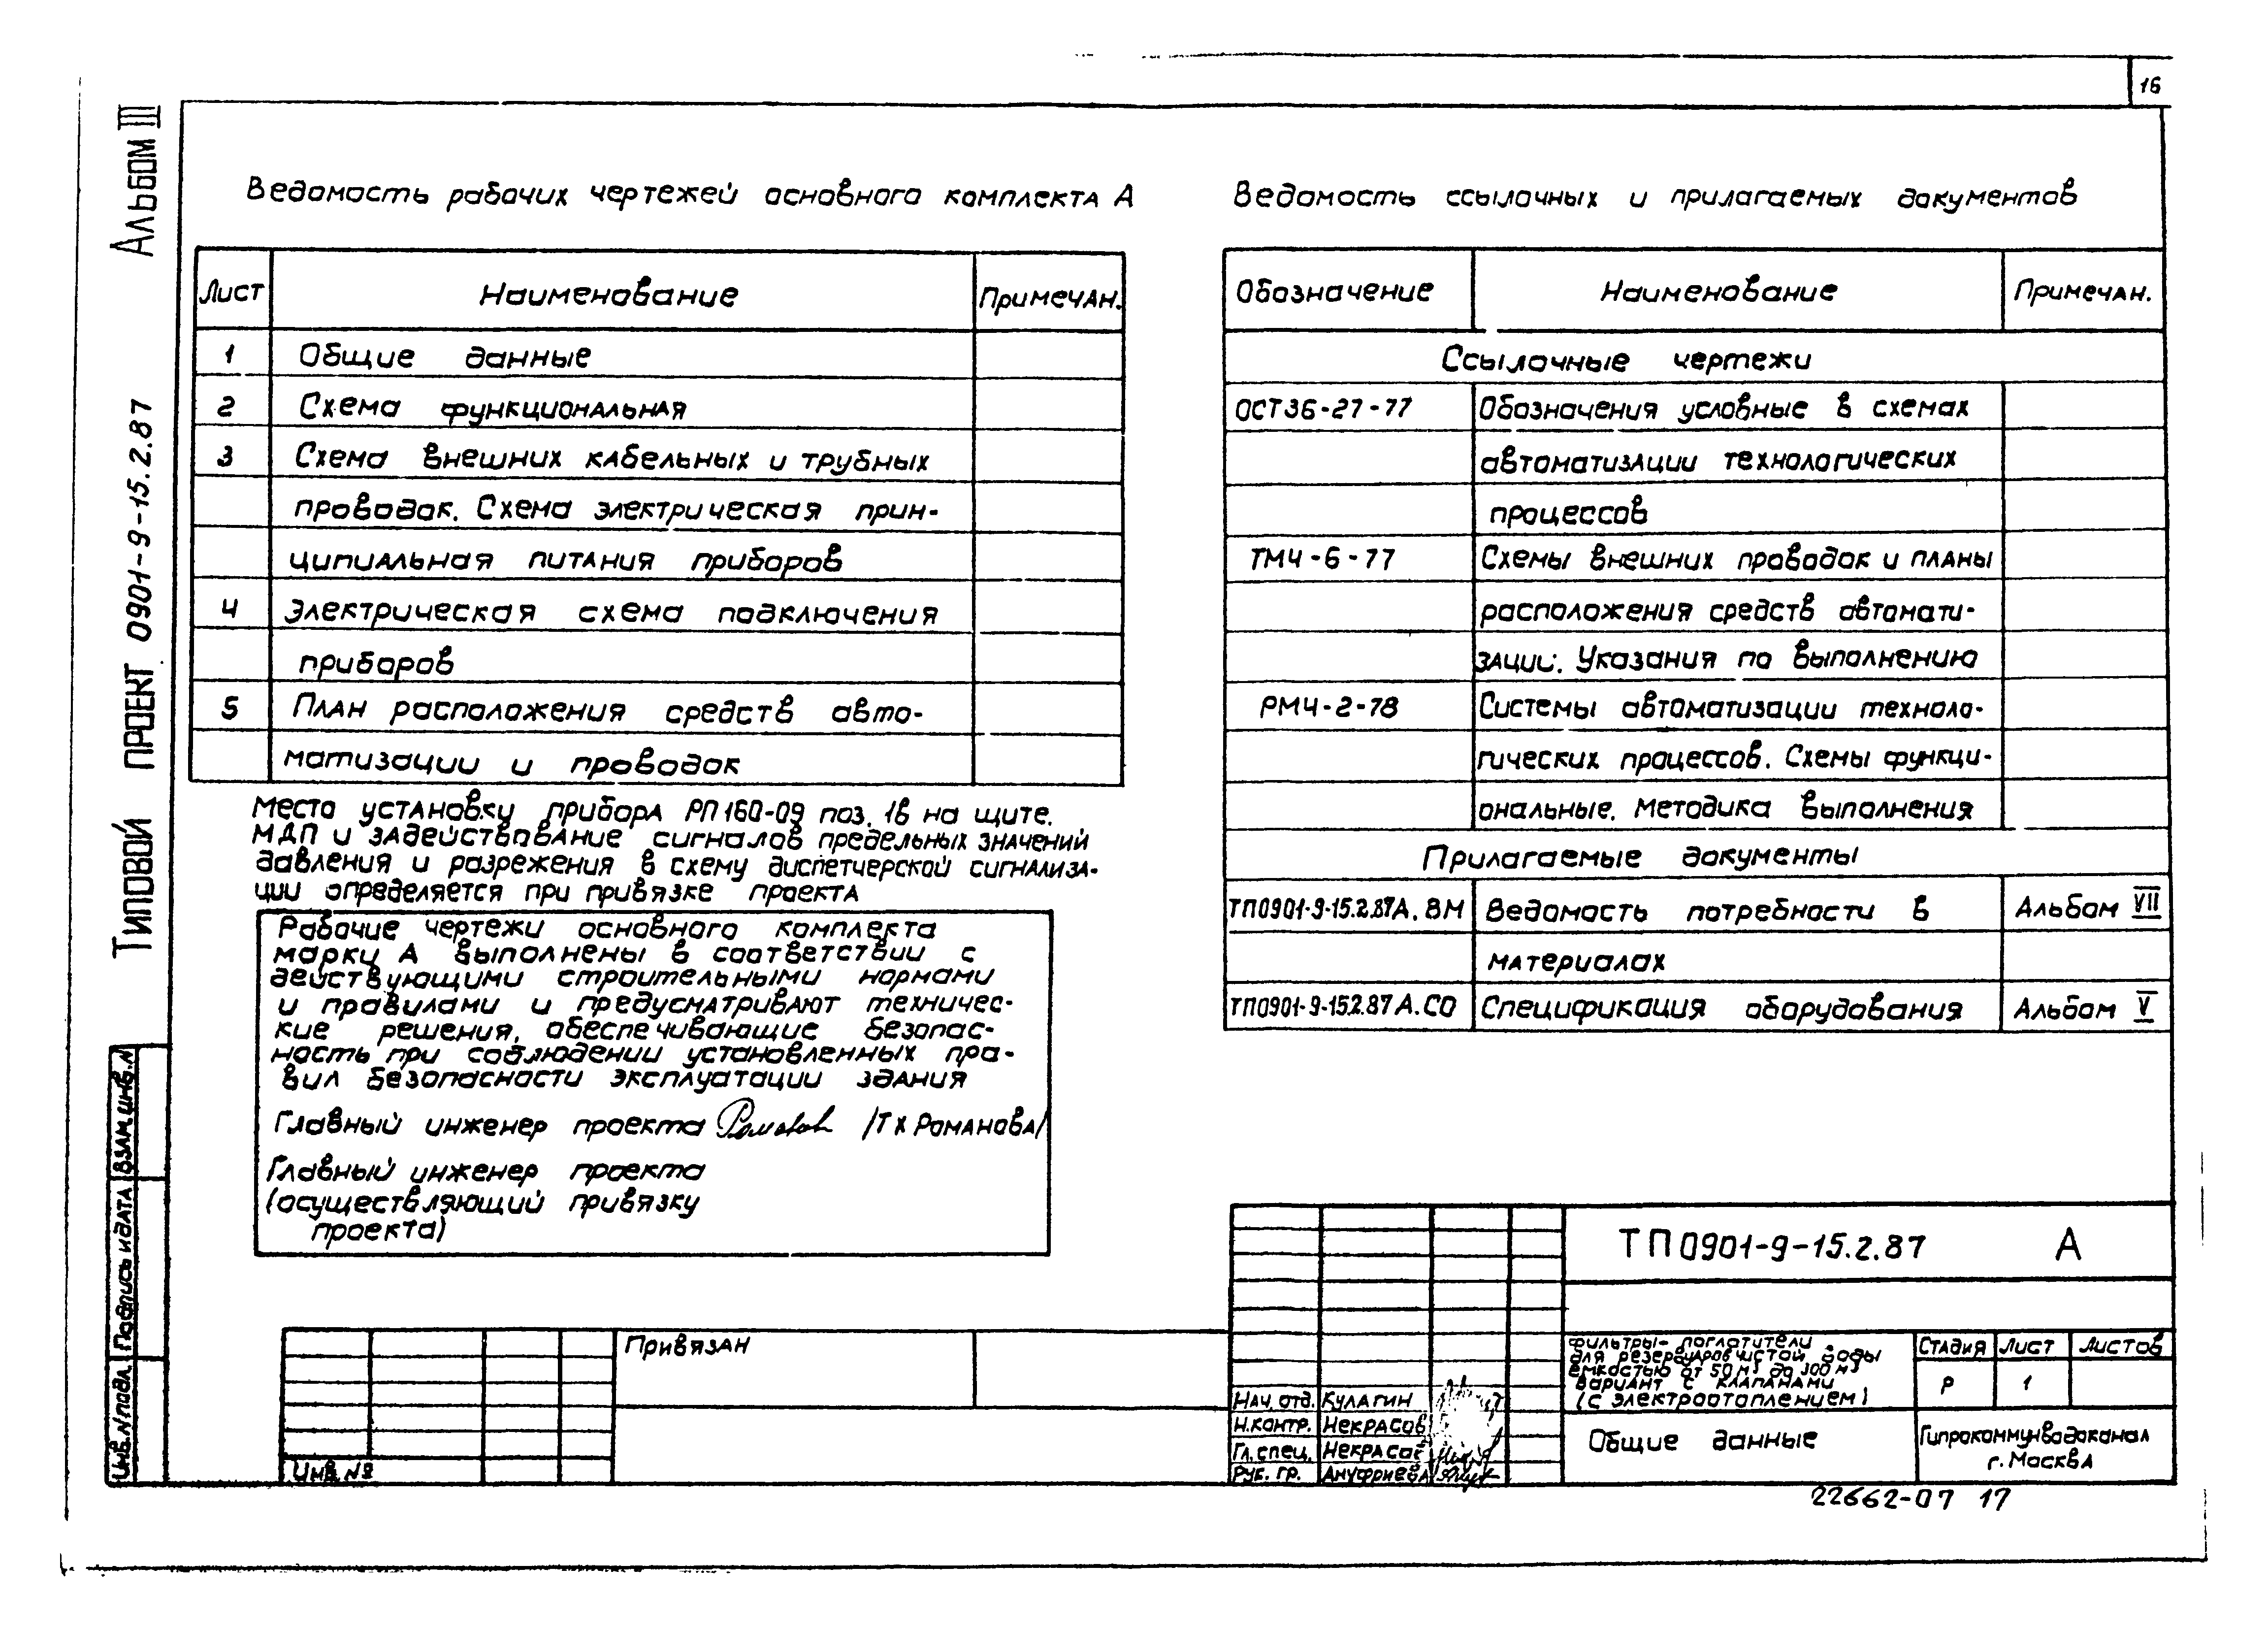 16
Альбом III
Типовой проект 0901-9-15.2.87
Ведомость рабочих чертежей основного комплекта А
Лист Наименование Примечан.
1 Общие данные
2 Схема функциональная
3 Схема внешних кабельных и трубных
проводок. Схема электрическая прин-
ципиальная питания приборов
4 Электрическая схема подключения
приборов
5 План расположения средств авто-
матизации и проводок
Место установку прибора РП160-09 поз. 1в на щите.
МДП и задействование сигналов предельных значений
давления и разрежения в схему диспетчерской сигнализа-
ции определяется при привязке проекта
Рабочие чертежи основного комплекта
марку А выполнены в соответствии с
действующими строительными нормами
и правилами и предусматривают техничес-
кие решения, обеспечивающие безопас-
ность при соблюдении установленных пра-
вил безопасности эксплуатации здания
Главный инженер проекта /ТХ Романова/
Главный инженер проекта
(осуществляющий привязку
проекта)
Ведомость ссылочных и прилагаемых документов
Обозначение Наименование Примечан.
Ссылочные чертежи
ОСТ36-27-77 Обозначения условные в схемах
автоматизации технологических
процессов
ТМ4-6-77 Схемы внешних проводок и планы
расположения средств автомати-
зации. Указания по выполнению
РМ4-2-78 Системы автоматизации техноло-
гических процессов. Схемы функци-
ональные. Методика выполнения
Прилагаемые документы
ТП0901-9-15.2.87А.ВМ Ведомость потребности в Альбом VII
материалах
ТП0901-9-15.2.87А.СО Спецификация оборудования Альбом V
Взам.инв.N
Подпись и дата
Инв.N подл.
Привязан
Инв.№
ТП0901-9-15.2.87 А
Фильтры-поглотители
для резервуаров чистой воды
емкостью от 50м³ до 300 м³
Вариант с клапанами
(с электроотоплением)
Стадия Лист Листов
Р 1
Нач. отд. Кулагин
Н.контр. Некрасов
Гл. спец. Некрасов
Рук. гр. Ануфриева
Общие данные
Гипрокоммунводоканал
г. Москва
22662-07 17